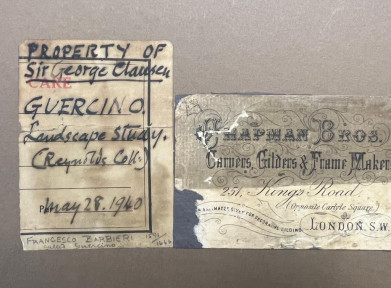 PROPERTY OF
Sir George Clausen
CARE
GUERCINO.
Landscape Study.
(Reynolds Coll:)
May 28. 1940
FRANCESCO BARBIERI
called Guercino
1591
1666
CHAPMAN BROS.
Carvers, Gilders & Frame Maker
251, Kings Road,
(Opposite Carlyle Square)
LONDON. S.W.